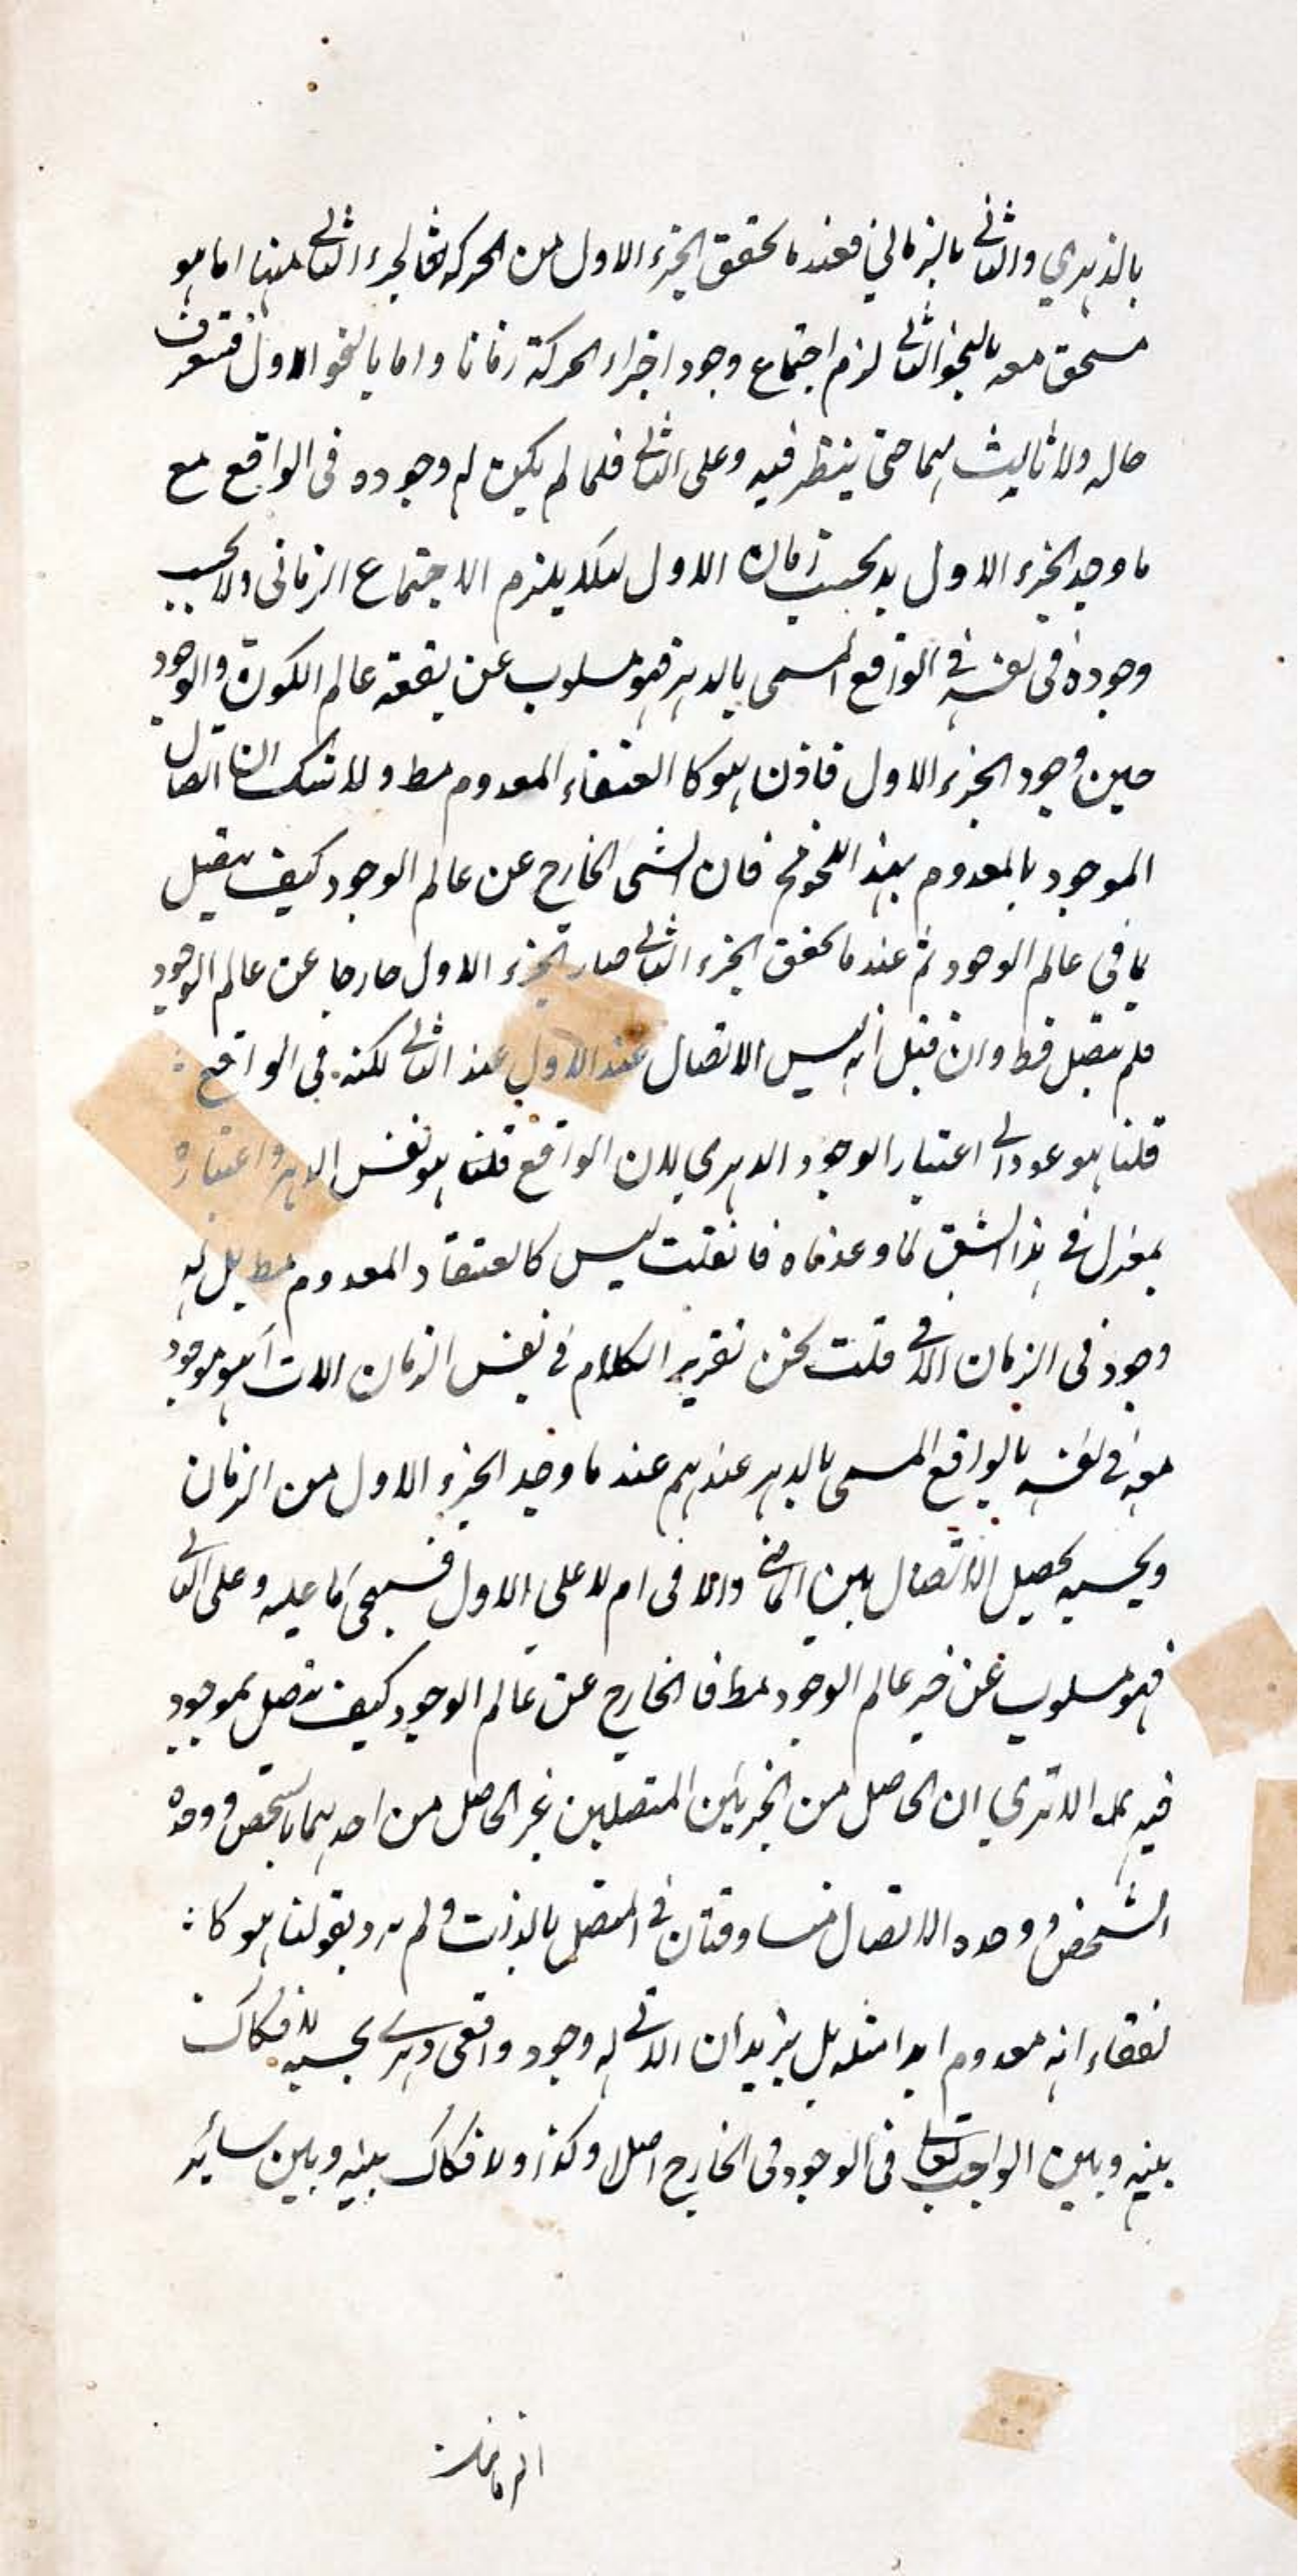 بالدهري والثاني بالزماني فعند ما تحقق الجزء الاول من الحركة فالجزء الثاني منها اما هو
متحقق معه بالنحو الثاني لزم اجتماع وجود اجزاء الحركة زمانا واما بالنحو الاول فستعرف
حاله ولا ثالث لهما حتى ينتظر فيه وعلى الثاني فلما لم يكن له وجوده في الواقع مع
ما وجد الجزء الاول لا بحسب زمان الاول لئلا يلزم الاجتماع الزماني ولا بحسب
وجوده في نفسه في الواقع المسمى بالدهر فهو مسلوب عن بقعة عالم الكون والوجود
حين وجود الجزء الاول فاذن هو كالعنقاء المعدوم مط ولا شك ان اتصال
الموجود بالمعدوم بهذا النحو مح فان الشئ الخارج عن عالم الوجود كيف يتصل
بما في عالم الوجود ثم عند ما تحقق الجزء الثاني صار الجزء الاول خارجا عن عالم الوجود
فلم يتصل قط وان قيل انه ليس الاتصال عند الاول عند الثاني لكنه في الواقع
قلنا هو عود الى اعتبار الوجود الدهري لان الواقع قلنا هو نفس الدهر واعتباره
بمعزل في هذا الشق لما وعدناه فان قلت ليس كالعنقاء المعدوم مط بل له
وجود في الزمان الاتي قلت نحن نقرر الكلام في نفس الزمان الات أهو موجود
معه في نفسه بالواقع المسمى بالدهر عندهم عند ما وجد الجزء الاول من الزمان
وبحسبه يحصل الاتصال بين الماضي والاتي ام لا على الاول فسيجئ ما عليه وعلى الثاني
فهو مسلوب عن حيز عالم الوجود مط فالخارج عن عالم الوجود كيف يتصل بموجود
فيه الا ترى ان الحاصل من الجزئين المتصلين غير الحاصل من احدهما بالشخص ووحدة
الشخص ووحدة الاتصال متساوقتان في المتصل بالذات ولم نرد بقولنا هو كا
لعنقاء انه معدوم ابدا مثله بل نريد ان الاتي له وجود واقعي دهري بحسبه لا فكاك
بينه وبين الواجب تعالى في الوجود في الخارج اصلا وكذا ولا فكاك بينه وبين سائر
الزمانيات